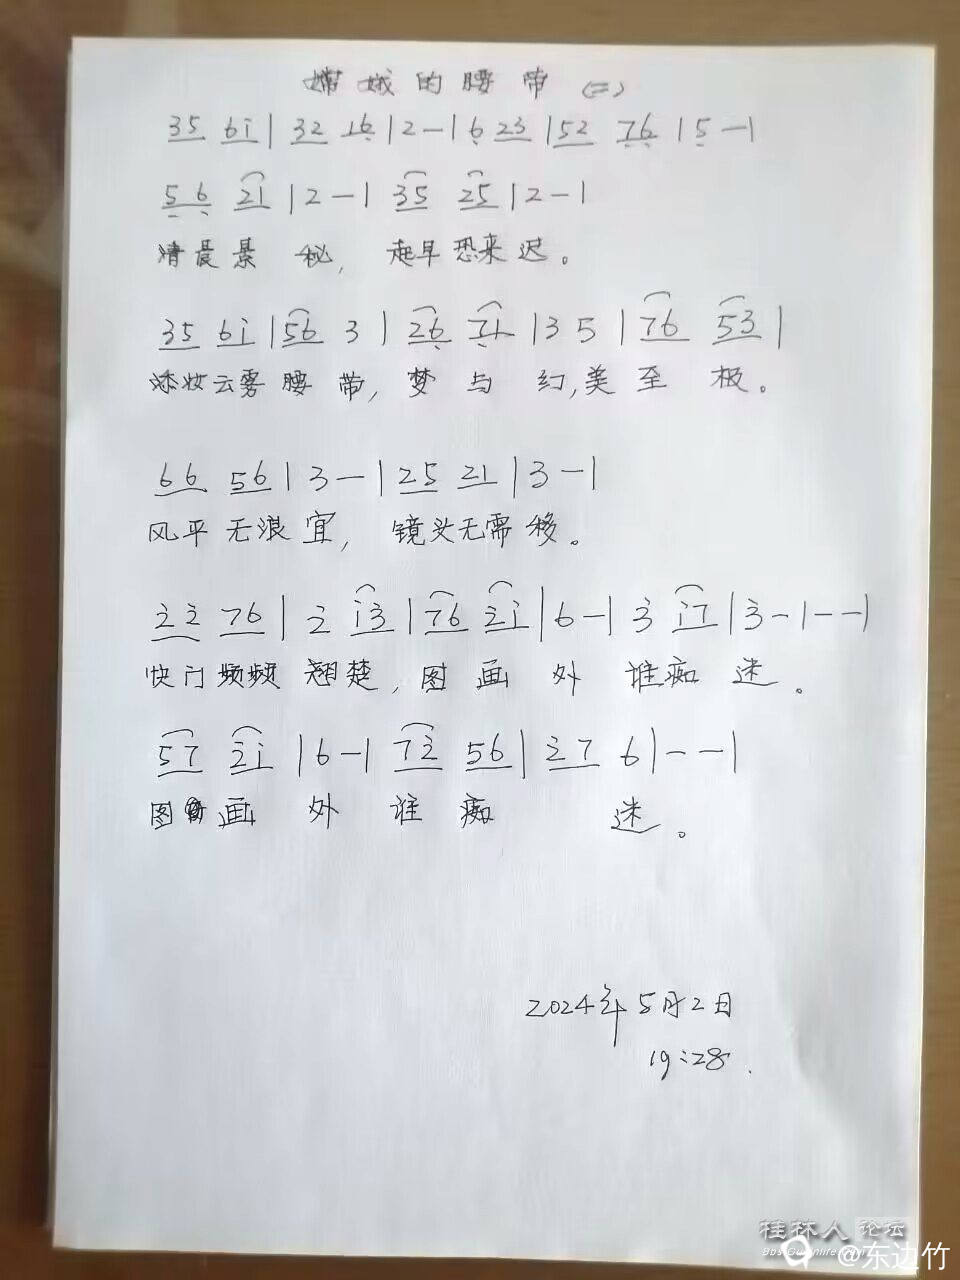 嫦娥的腰带 (二)
35 6i | 32 16 | 2 - | 6 23 | 52 76 | 5 - |
56 21 | 2 - | 35 25 | 2 - |
清晨景秘, 起早恐来迟。
35 6i | 56 3 | 26 71 | 3 5 | 76 53 |
添妆云雾腰带, 梦与幻, 美至极。
66 56 | 3 - | 25 21 | 3 - |
风平无浪宜, 镜头无需移。
22 76 | 2 i3 | 76 2i | 6 - | 3 i7 | 3 - | - - |
快门频频翘楚, 图画外谁痴迷。
57 2i | 6 - | 72 56 | 27 6 | - - |
图画外谁痴迷。
2024年5月2日
19:28.
桂林人论坛
@东边竹